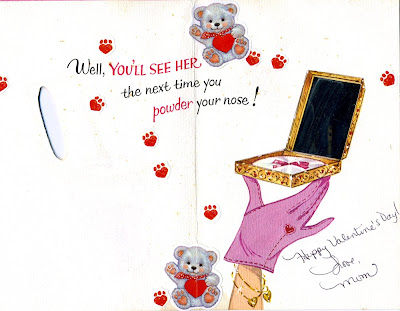 Well, YOU'LL SEE HER
the next time you
powder your nose!
Happy Valentine's Day!
Love,
Mom